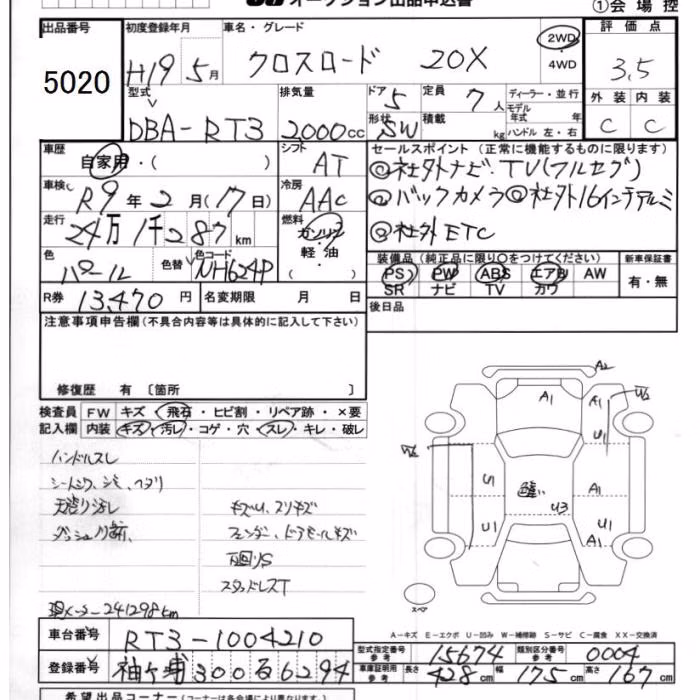 オークション出品申込書
①会場控
出品番号 5020
初度登録年月 H19年5月
車名・グレード クロスロード 20X
2WD・4WD
評価点 3.5
外装 C 内装 C
型式 DBA-RT3
排気量 2000cc
ドア 5
形状 SW
定員 7人
積載 kg
ディーラー・並行
モデル年式 年
ハンドル 左・右
車歴 自家用・( )
シフト AT
車検 R9年2月(17日)
冷房 AAC
走行 24万1千287km
燃料 ガソリン・軽油 ( )
色 パール 色替 色コード NH624P
R券 13,470円 名変期限 月 日
セールスポイント(正常に機能するものに限ります)
◎社外ナビ.TV(フルセグ)
◎バックカメラ◎社外16インチアルミ
◎社外ETC
装備品(純正品に限り○をつけてください) 新車保証書
PS PW ABS エアB AW 有・無
SR ナビ TV カワ
後日品
注意事項申告欄(不具合内容等は具体的に記入して下さい)
修復歴 有〔箇所 〕
検査員 FW キズ・飛石・ヒビ割・リペア跡・×要
記入欄 内装 キズ・汚レ・コゲ・穴・スレ・キレ・破レ
ハンドルスレ
天張り汚レ
キズU、スリキズ
フェンダー、ドアモールキズ
下廻りS
スタッドレスT
現メーター241298km
A2
A1 A1 W2
U1
W2
U1 色違い A1
U3
U1 U1
A1
スペア
A-キズ E-エクボ U-凹み W-補修跡 S-サビ C-腐食 XX-交換済
車台番号 RT3-1004210
登録番号 袖ケ浦300る6294
型式指定番号 参考 15674 類別区分番号 参考 0004
車庫証明用 参考 長さ 428cm 幅 175cm 高さ 167cm
希望出品コーナー